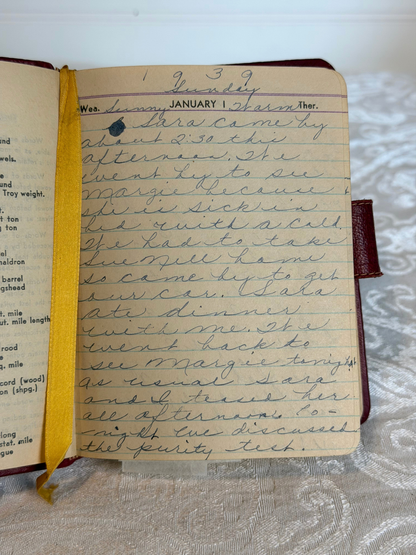 und
wels.
und
Troy weight.
t.
t ton
g ton
el.
naldron
barrel
gshead
t. mile
ut. mile length
rood
e
q. mile
cord (wood)
on (shpg.)
long
stat. mile
gue
1 9 3 9
Sunday
Wea. Sunny JANUARY 1 Warm Ther.
Sara came by
about 2:30 this
afternoon. We
went by to see
Margie because
she is sick in
bed with a cold.
We had to take
Sue Nell home
so came by to get
our car. Sara
ate dinner
with me. We
went back to
see Margie tonight
as usual Sara
and I teased her
all afternoon. To-
night we discussed
the purity test.